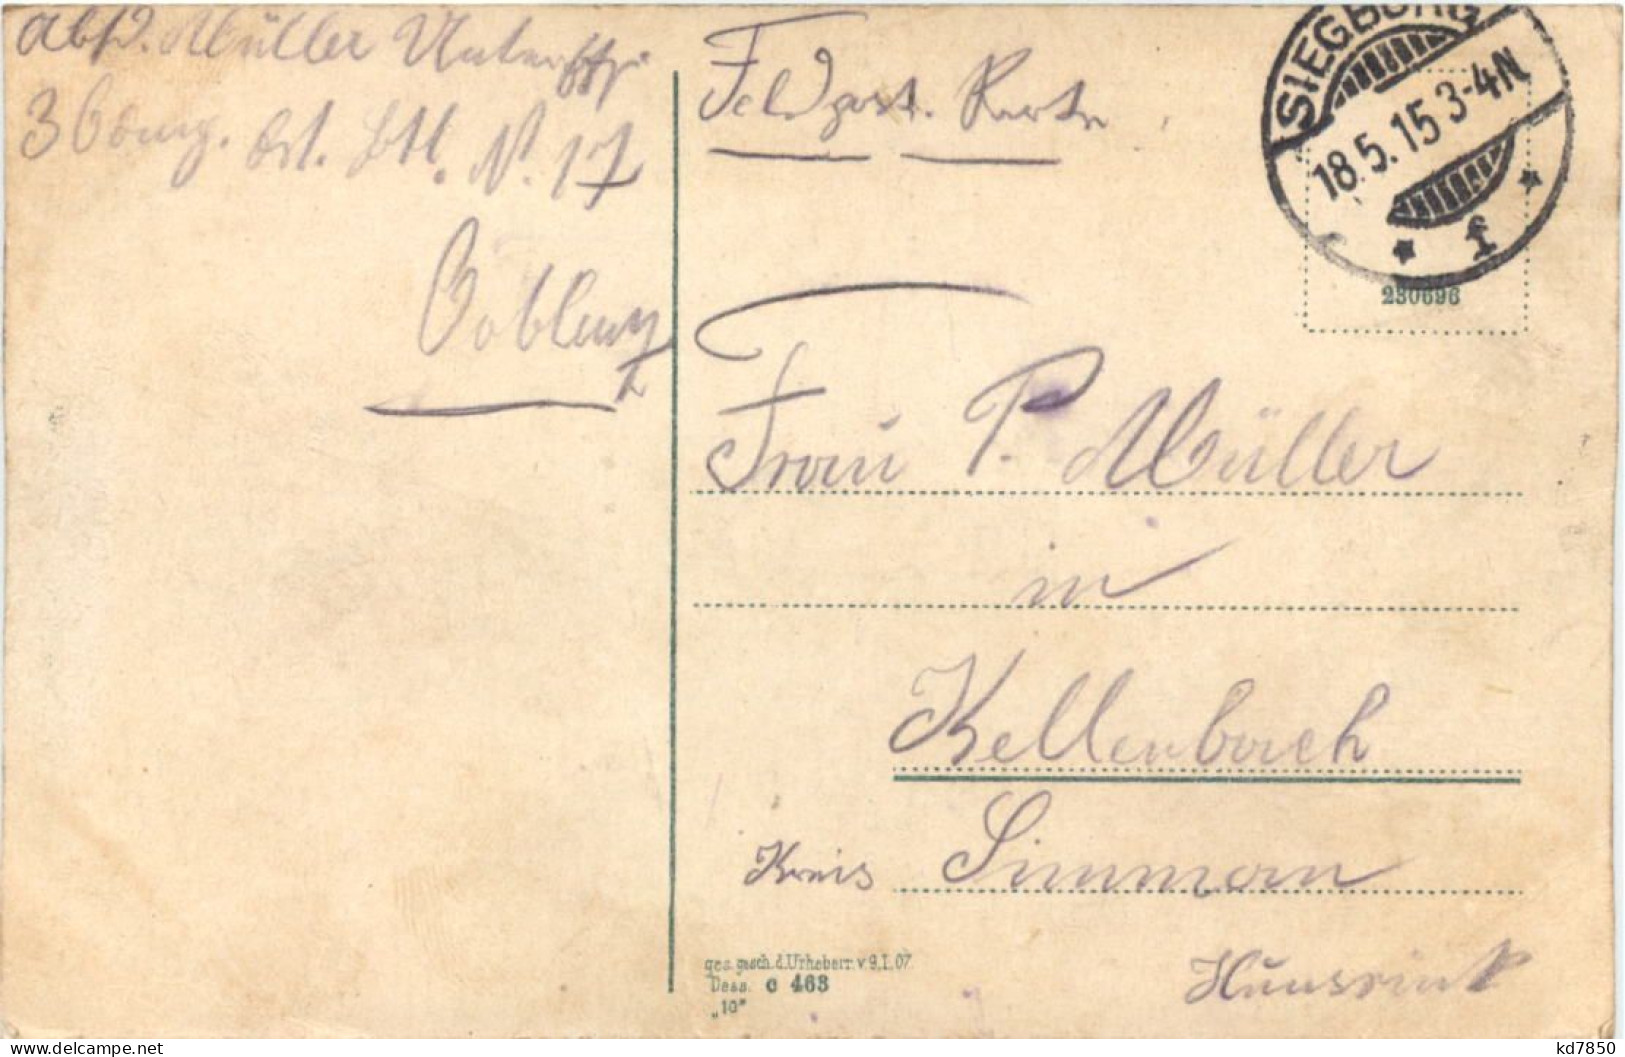 Abs. Müller Unteroffz.
3 Comp. Ers. Btl. N. 17
Coblenz
Feldpost. Karte
SIEGBURG
18.5.15 3-4N
* f *
230696
Frau P. Müller
in
Kellenbach
Kreis Simmern
Hunsrück
ges. gesch. d. Urheberr. v. 9.1.07.
Dess. c 463
„10"
kd7850